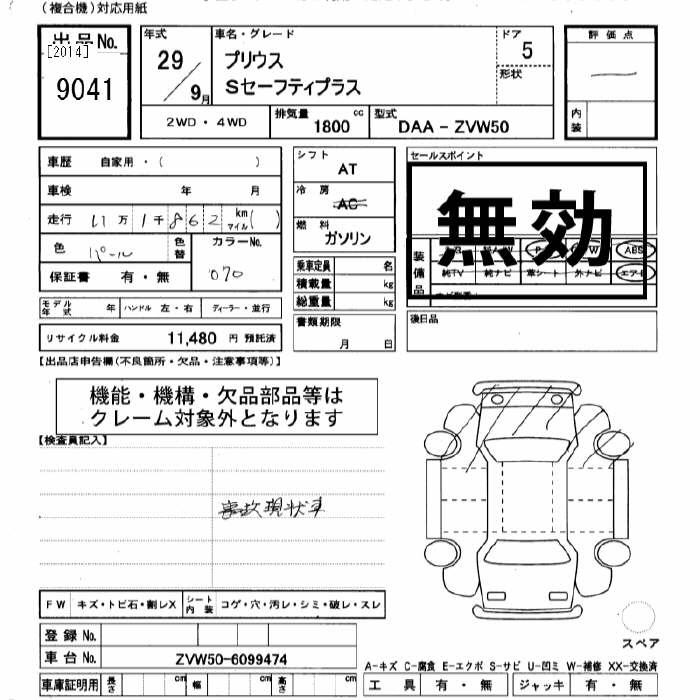 (複合機)対応用紙
出品No.
[2014]
9041
年式
29
9月
車名・グレード
プリウス
Sセーフティプラス
ドア
5
形状
評価点
内装
2WD・4WD
排気量
1800 cc
型式
DAA - ZVW50
車歴 自家用・( )
車検 年 月
走行 11万1千862 km マイル( )
色 パール 色替 カラーNo. 070
保証書 有・無
シフト
AT
冷房
AC
燃料
ガソリン
セールスポイント
無効
装備品
ABS
純TV 純ナビ 革シート 外ナビ エアB
乗車定員 名
積載量 kg
総重量 kg
モデル年式 年 ハンドル 左・右 ディーラー・並行
書類期限
月 日
後日品
リサイクル料金 11,480 円 預託済
【出品店申告欄(不良箇所・欠品・注意事項等)】
機能・機構・欠品部品等は
クレーム対象外となります
【検査員記入】
事故現状車
FW キズ・トビ石・割レX シート内装 コゲ・穴・汚レ・シミ・破レ・スレ
登録No.
車台No. ZVW50-6099474
車庫証明用 長さ cm 幅 cm 高さ cm
スペア
A-キズ C-腐食 E-エクボ S-サビ U-凹ミ W-補修 XX-交換済
工具 有・無 ジャッキ 有・無